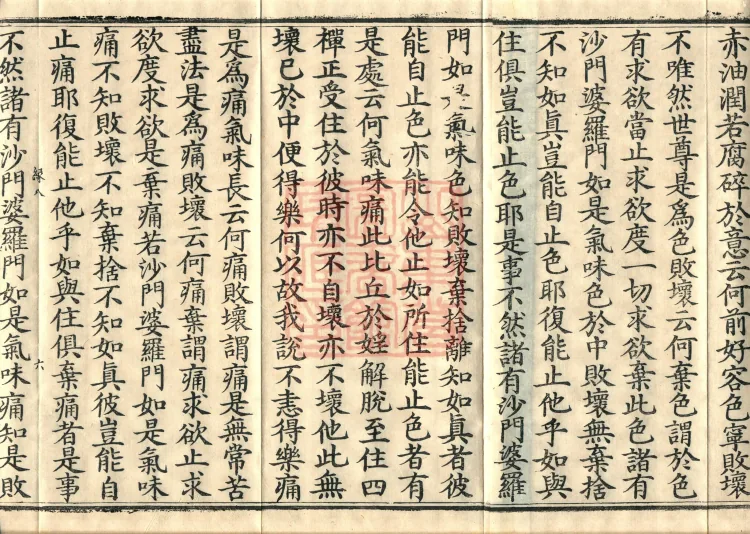 赤油潤若腐碎於意云何前好容色寧敗壞
不唯然世尊是爲色敗壞云何棄色謂於色
有求欲當止求欲度一切求欲棄此色諸有
沙門婆羅門如是氣味色於中敗壞無棄捨
不知如眞豈能自止色耶復能止他乎如與
住俱豈能止色耶是事不然諸有沙門婆羅
門如是氣味色知敗壞棄捨離知如眞者彼
能自止色亦能令他止如所住能止色者有
是處云何氣味痛此比丘於婬解脫至住四
禪正受住於彼時亦不自壞亦不壞他此無
壞已於中便得樂何以故我說不恚得樂痛
是爲痛氣味長云何痛敗壞謂痛是無常苦
盡法是爲痛敗壞云何痛棄謂痛求欲止求
欲度求欲是棄痛若沙門婆羅門如是氣味
痛不知敗壞不知棄捨不知如眞彼豈能自
止痛耶復能止他乎如與住俱棄痛者是事
六
不然諸有沙門婆羅門如是氣味痛知是敗